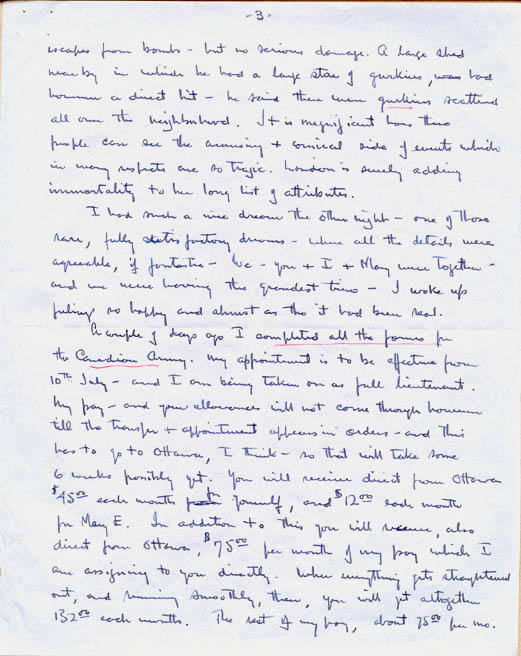 -3-
escapes from bombs - but no serious damage. A large shed
nearby in which he had a large store of gurkins, was had
however a direct hit - he said there were gurkins scattered
all over the neighborhood. It is magnificent how these
people can see the amusing + comical side of events which
in many respects are so tragic. London is surely adding
immortality to her long list of attributes.
I had such a nice dream the other night - one of those
rare, fully satisfactory dreams - where all the details were
agreeable, if fantastic - We - you + I + Mary were together -
and we were having the grandest time - I woke up
feeling so happy and almost as tho it had been real.
A couple of days ago I completed all the forms for
the Canadian Army. My appointment is to be effective from
10th July - and I am being taken on as full lieutenant.
My pay - and your allowances will not come through however
till the transfer + appointment appears in orders - and this
has to go to Ottawa, I think - so that will take some
6 weeks possibly yet. You will receive direct from Ottawa
$45.00 each month for yourself, and $12.00 each month
for Mary E. In addition to this you will receive, also
direct from Ottawa, $75.00 per month of my pay which I
am assigning to you directly. When everything gets straightened
out, and running smoothly, then, you will get altogether
132.00 each month. The rest of my pay, about 75.00 per mo.